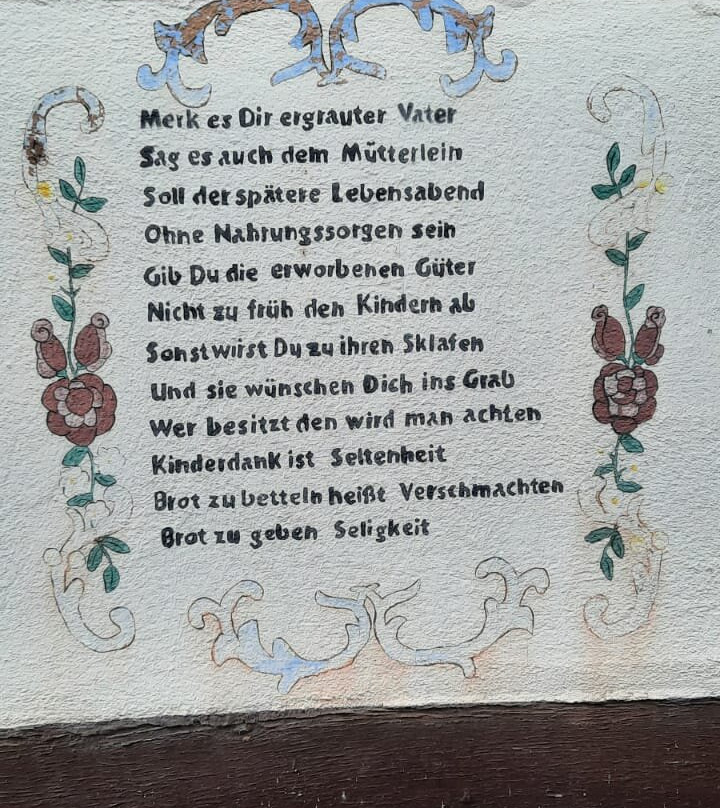 Merk es Dir ergrauter Vater
Sag es auch dem Mütterlein
Soll der spätere Lebensabend
Ohne Nahrungssorgen sein
Gib Du die erworbenen Güter
Nicht zu früh den Kindern ab
Sonst wirst Du zu ihren Sklafen
Und sie wünschen Dich ins Grab
Wer besitzt den wird man achten
Kinderdank ist Seltenheit
Brot zu betteln heißt Verschmachten
Brot zu geben Seligkeit